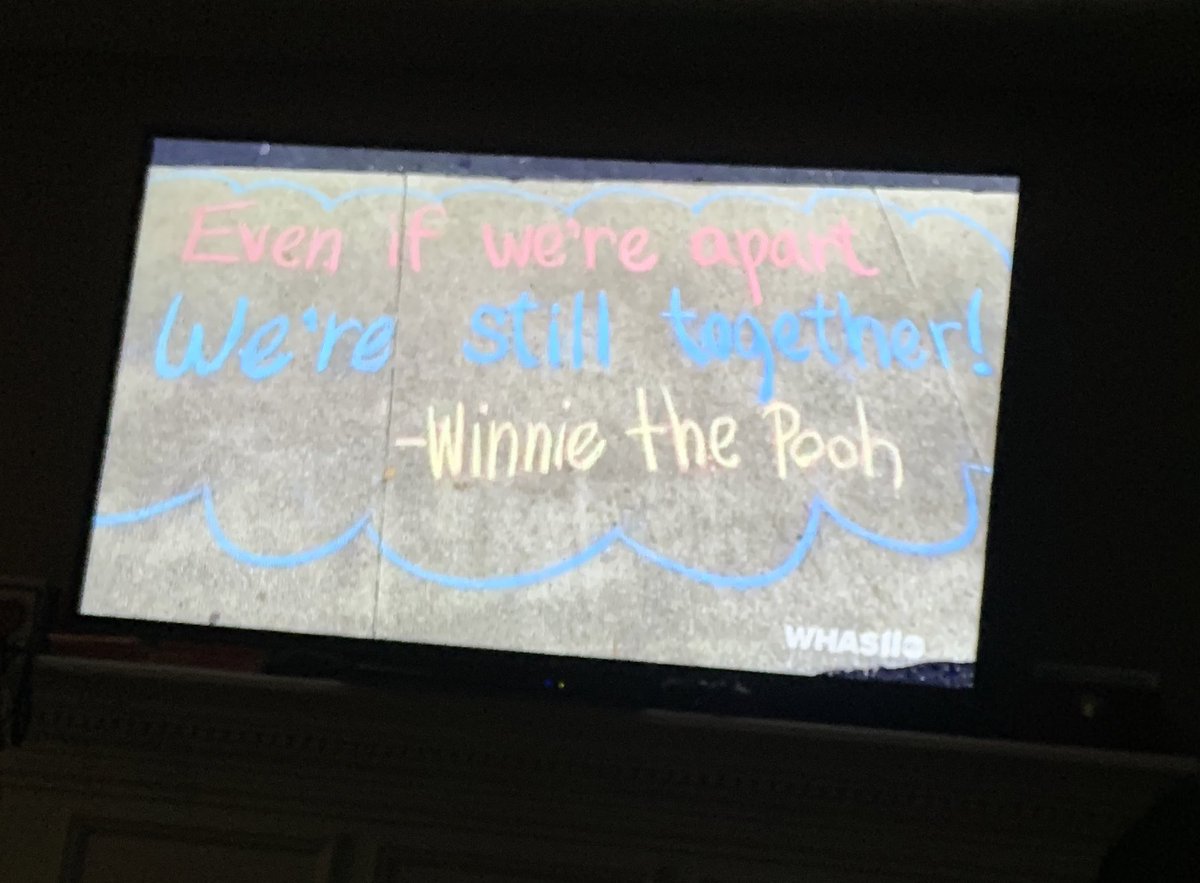 Even if we're apart
We're still together!
-Winnie the Pooh
WHAS11